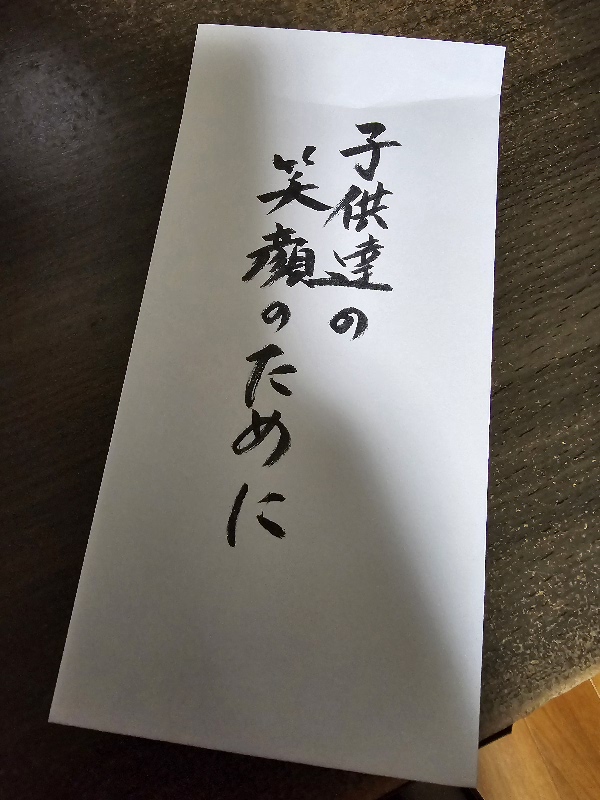 子供達の
笑顔のために